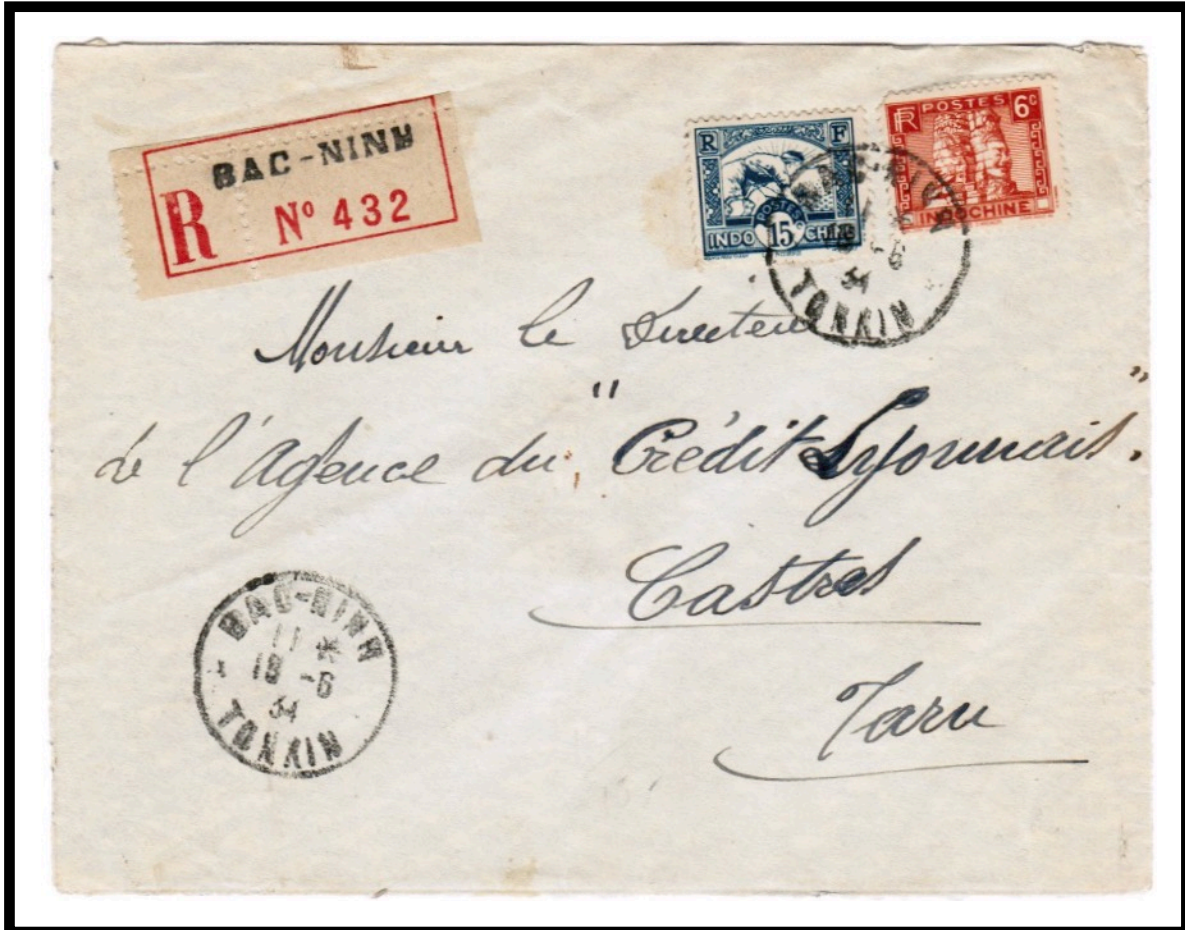 BAC-NINH
R N° 432
R F
POSTES
INDO 15 CHINE
RF POSTES 6c
INDOCHINE
BAC-NINH
18 -6
34
TONKIN
Monsieur le Directeur
de l'Agence du "Crédit Lyonnais".
Castres
Tarn
BAC-NINH
11 *
18 -6
34
TONKIN